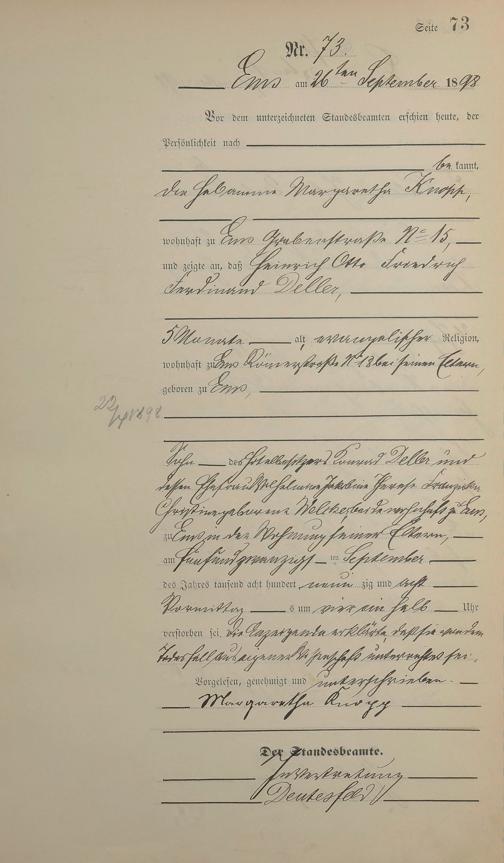 Seite 73
Nr. 73.
Ems am 26ten September 1898
Vor dem unterzeichneten Standesbeamten erschien heute, der
Persönlichkeit nach
bekannt,
die Hebamme Margaretha Knopp,
wohnhaft zu Ems Grabenstraße No 15,
und zeigte an, daß Heinrich Otto Friedrich
Ferdinand Deller,
5 Monate alt, evangelischer Religion,
wohnhaft zu Ems Römerstraße No 13 bei seinen Eltern,
geboren zu Ems,
Sohn des Hotelbesitzers Konrad Deller und
dessen Ehefrau Wilhelmine Jakobine Therese
Christine geborene beide wohnhaft zu Ems,
zu Ems in der Wohnung seiner Eltern,
am fünfundzwanzigsten September
des Jahres tausend acht hundert neunzig und acht
Vormittags um vier ein halb Uhr
verstorben sei, die Anzeigende erklärte, daß sie von dem
Todesfall aus eigener Wissenschaft unterrichtet sei.
Vorgelesen, genehmigt und unterschrieben.
Margaretha Knopp
Der Standesbeamte.
In Vertretung